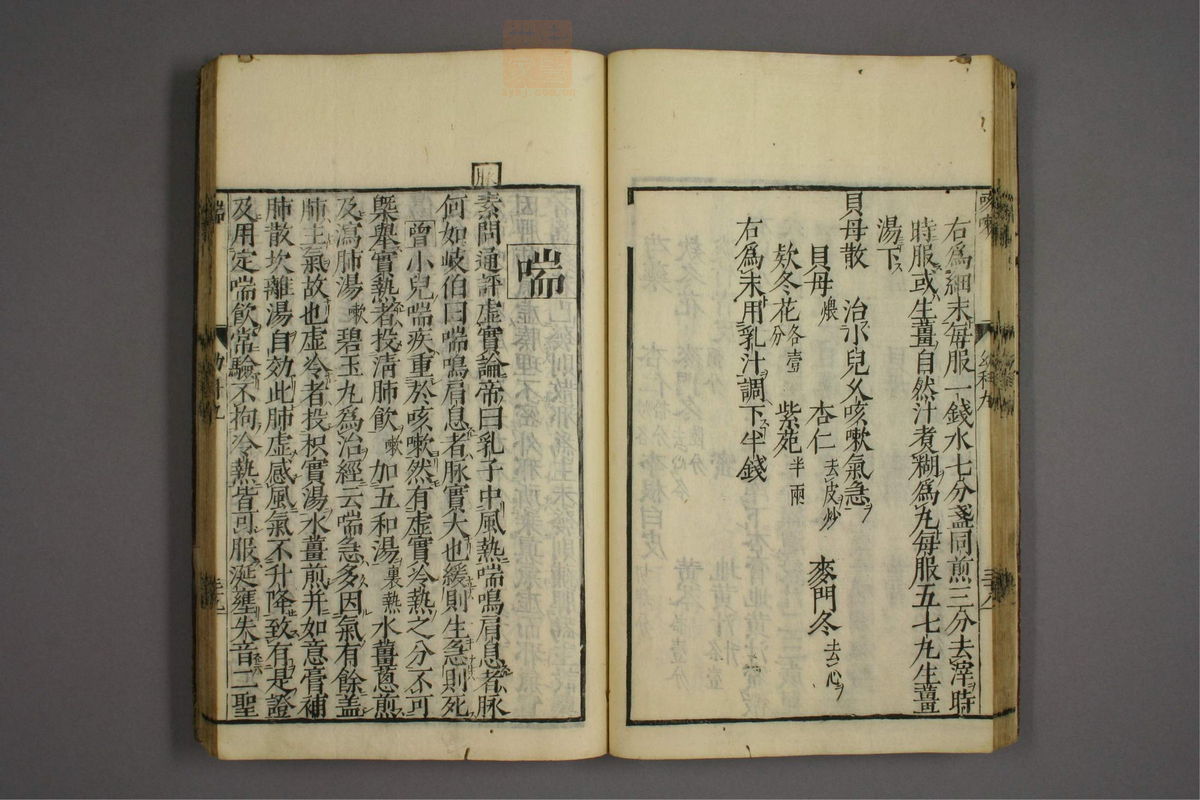 右爲細末每服一錢水七分盞同煎三分去滓時
時服或生薑自然汁煮糊爲丸每服五七丸生薑
湯下
貝母散 治小兒久咳嗽氣急
貝母煨 杏仁去皮炒 麥門冬去心
欵冬花各壹分 紫苑半兩
右爲末用乳汁調下半錢
喘
素問通評虛實論帝曰乳子中風熱喘鳴肩息者脉
何如岐伯曰喘鳴肩息者脉實大也緩則生急則死
曾小兒喘疾重於咳嗽然有虛實冷熱之分不可
槩舉實熱者投淸肺飮嗽加五和湯裏熱水薑蔥煎
及瀉肺湯嗽碧玉丸爲治經云喘急多因氣有餘盖
肺主氣故也虛冷者投枳實湯水薑煎并如意膏補
肺散坎離湯自効此肺虛感風氣不升降致有是證
及用定喘飮常驗不拘冷熱皆可服涎壅失音二聖
喘